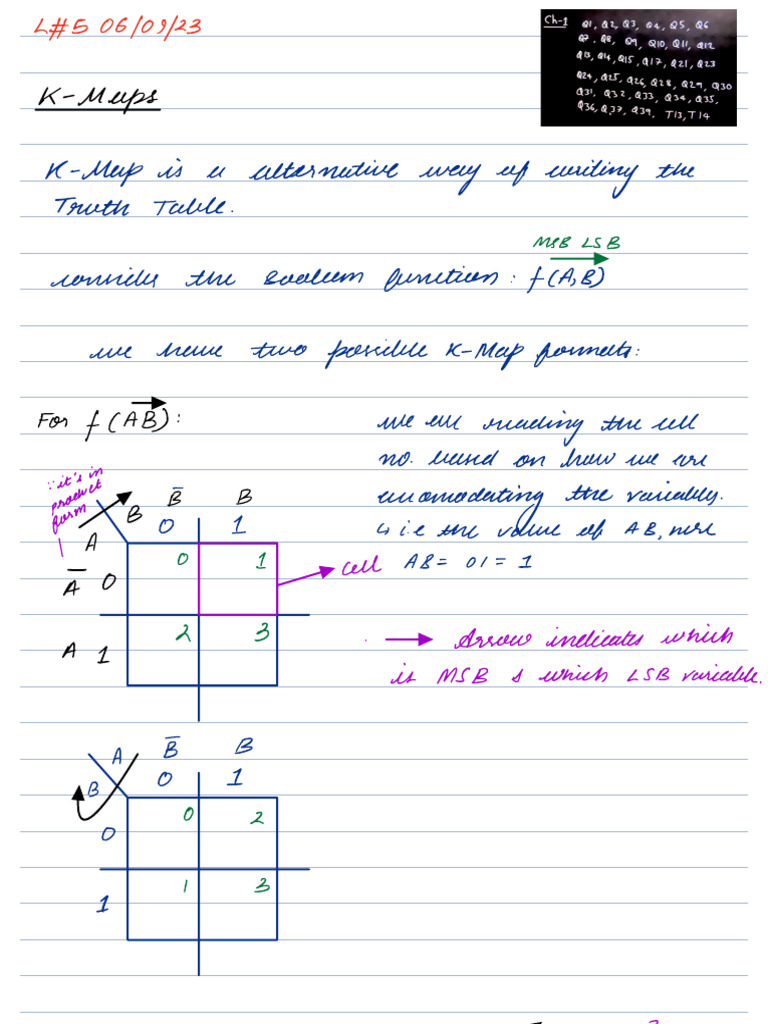 L#5 06/09/23
Ch-1 Q1, Q2, Q3, Q4, Q5, Q6
Q7, Q8, Q9, Q10, Q11, Q12
Q13, Q14, Q15, Q17, Q21, Q23
Q24, Q25, Q26, Q28, Q29, Q30
Q31, Q32, Q33, Q34, Q35,
Q36, Q37, Q39, T13, T14
K-Maps
K-Map is a alternative way of writing the
Truth Table.
MSB LSB
consider the Boolean function: f(A,B)
we have two possible K-Map formats:
For f(AB):
we are reading the cell
no. based on how we are
accomodating the variables.
↳ i.e the value of AB, here
AB = 01 = 1
∵ it's in
product
form
A B B̅ B
0 1
A̅ 0 0 1
cell
A 1 2 3
→ Arrow indicates which
is MSB & which LSB variable.
A B B̅ B
0 1
0 0 2
1 1 3